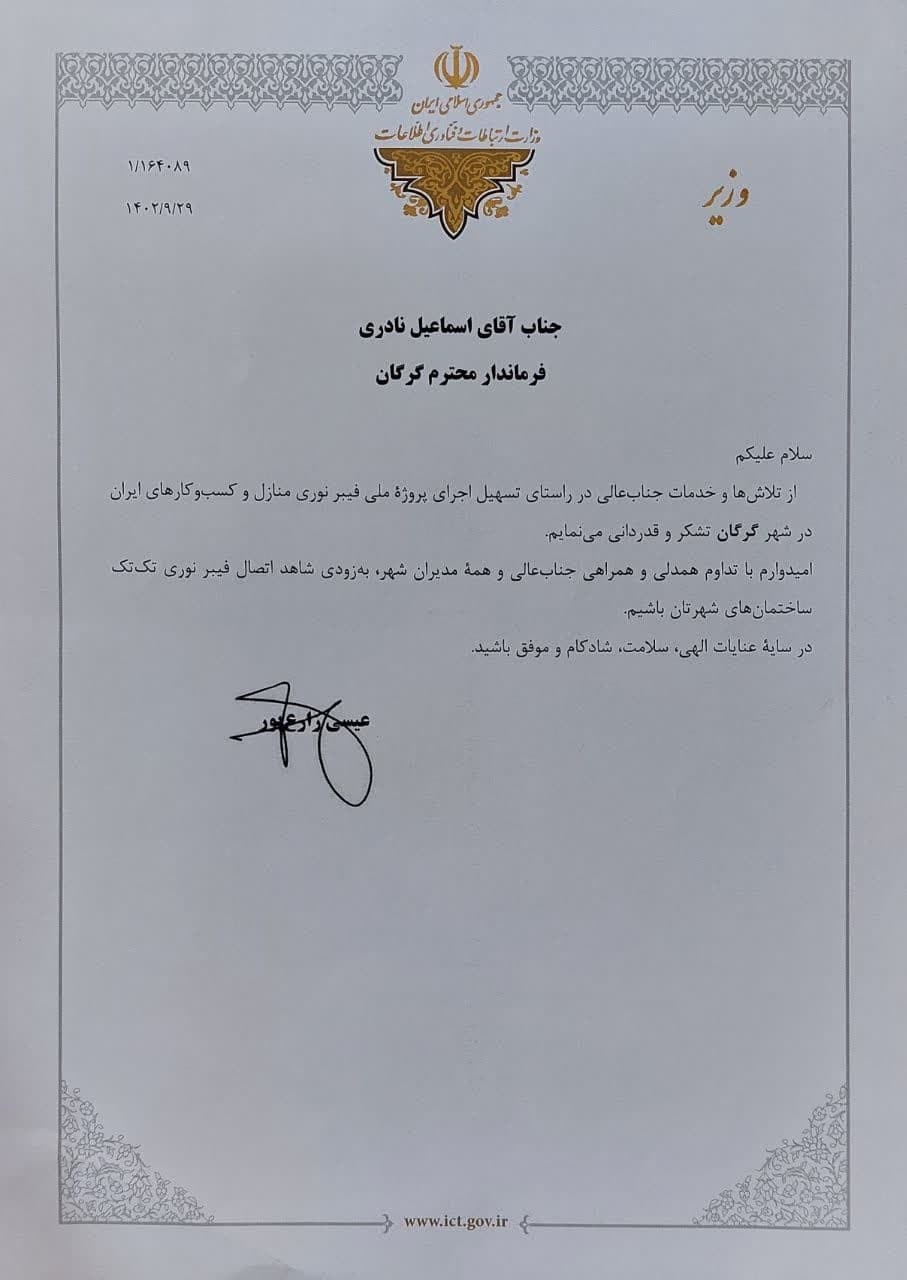 جمهوری اسلامی ایران
وزارت ارتباطات و فناوری اطلاعات
وزیر
۱/۱۶۴۰۸۹
۱۴۰۲/۹/۲۹
جناب آقای اسماعیل نادری
فرماندار محترم گرگان
سلام علیکم
از تلاش‌ها و خدمات جناب‌عالی در راستای تسهیل اجرای پروژهٔ ملی فیبر نوری منازل و کسب‌وکارهای ایران
در شهر گرگان تشکر و قدردانی می‌نمایم.
امیدوارم با تداوم همدلی و همراهی جناب‌عالی و همهٔ مدیران شهر، به‌زودی شاهد اتصال فیبر نوری تک‌تک
ساختمان‌های شهرتان باشیم.
در سایهٔ عنایات الهی، سلامت، شادکام و موفق باشید.
عیسی زارع‌پور
www.ict.gov.ir